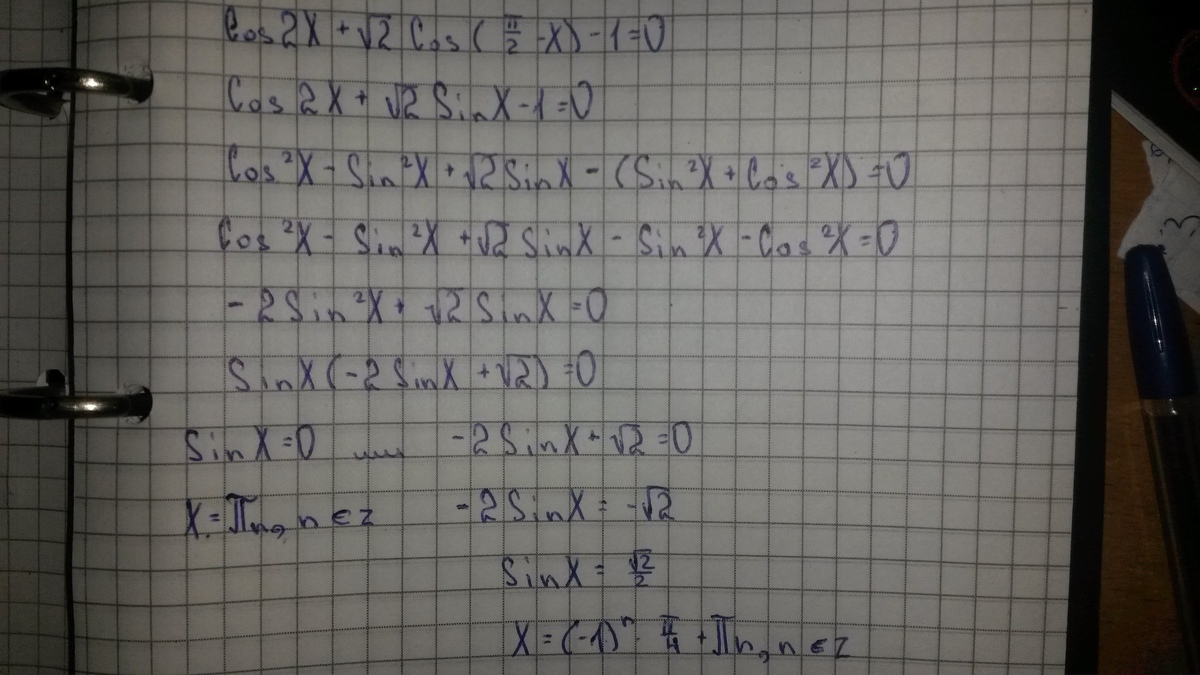 Cos2X + √2 Cos(π/2 - X) - 1 = 0
Cos2X + √2 SinX - 1 = 0
Cos²X - Sin²X + √2 SinX - (Sin²X + Cos²X) = 0
Cos²X - Sin²X + √2 SinX - Sin²X - Cos²X = 0
- 2Sin²X + √2 SinX = 0
SinX(-2SinX + √2) = 0
SinX = 0 или -2SinX + √2 = 0
X = πn, n ∈ z -2SinX = -√2
SinX = √2/2
X = (-1)ⁿ · π/4 + πn, n ∈ z